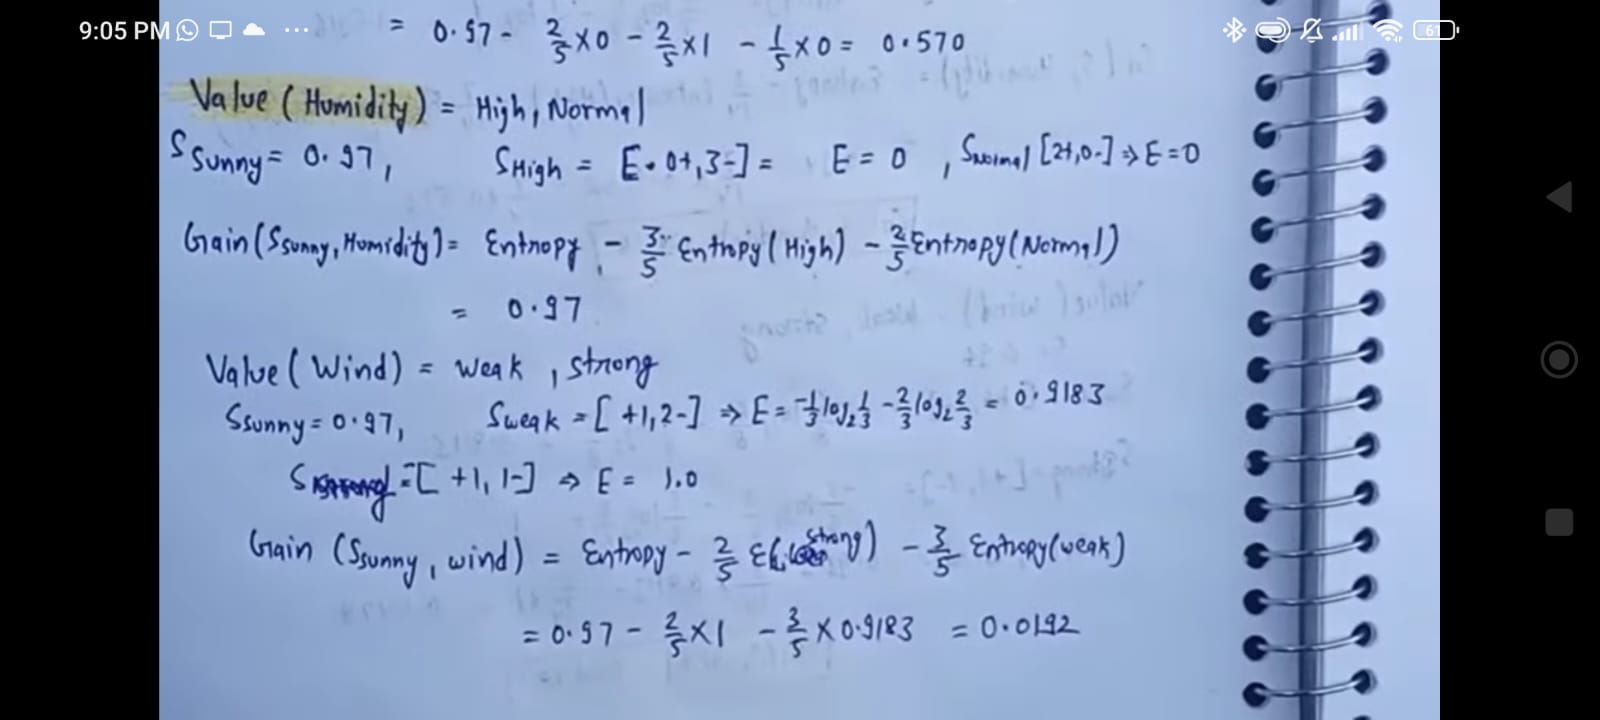 9:05 PM ... 61
= 0.97 - 2/5 X0 - 2/5 X1 - 1/5 X0 = 0.570
Value (Humidity) = High, Normal
S Sunny = 0.97, SHigh = [. 0+, 3-] = E = 0, SNormal [2+, 0-] ⇒ E = 0
Gain (Ssunny, Humidity) = Entropy - 3/5 Entropy (High) - 2/5 Entropy (Normal)
= 0.97
Value (Wind) = weak, strong
Ssunny = 0.97, Sweak = [+1, 2-] ⇒ E = -1/3 log₂ 1/3 - 2/3 log₂ 2/3 = 0.9183
Sstrong = [+1, 1-] ⇒ E = 1.0
Gain (Ssunny, wind) = Entropy - 2/5 E(strong) - 3/5 Entropy (weak)
= 0.97 - 2/5 X1 - 3/5 X 0.9183 = 0.0192